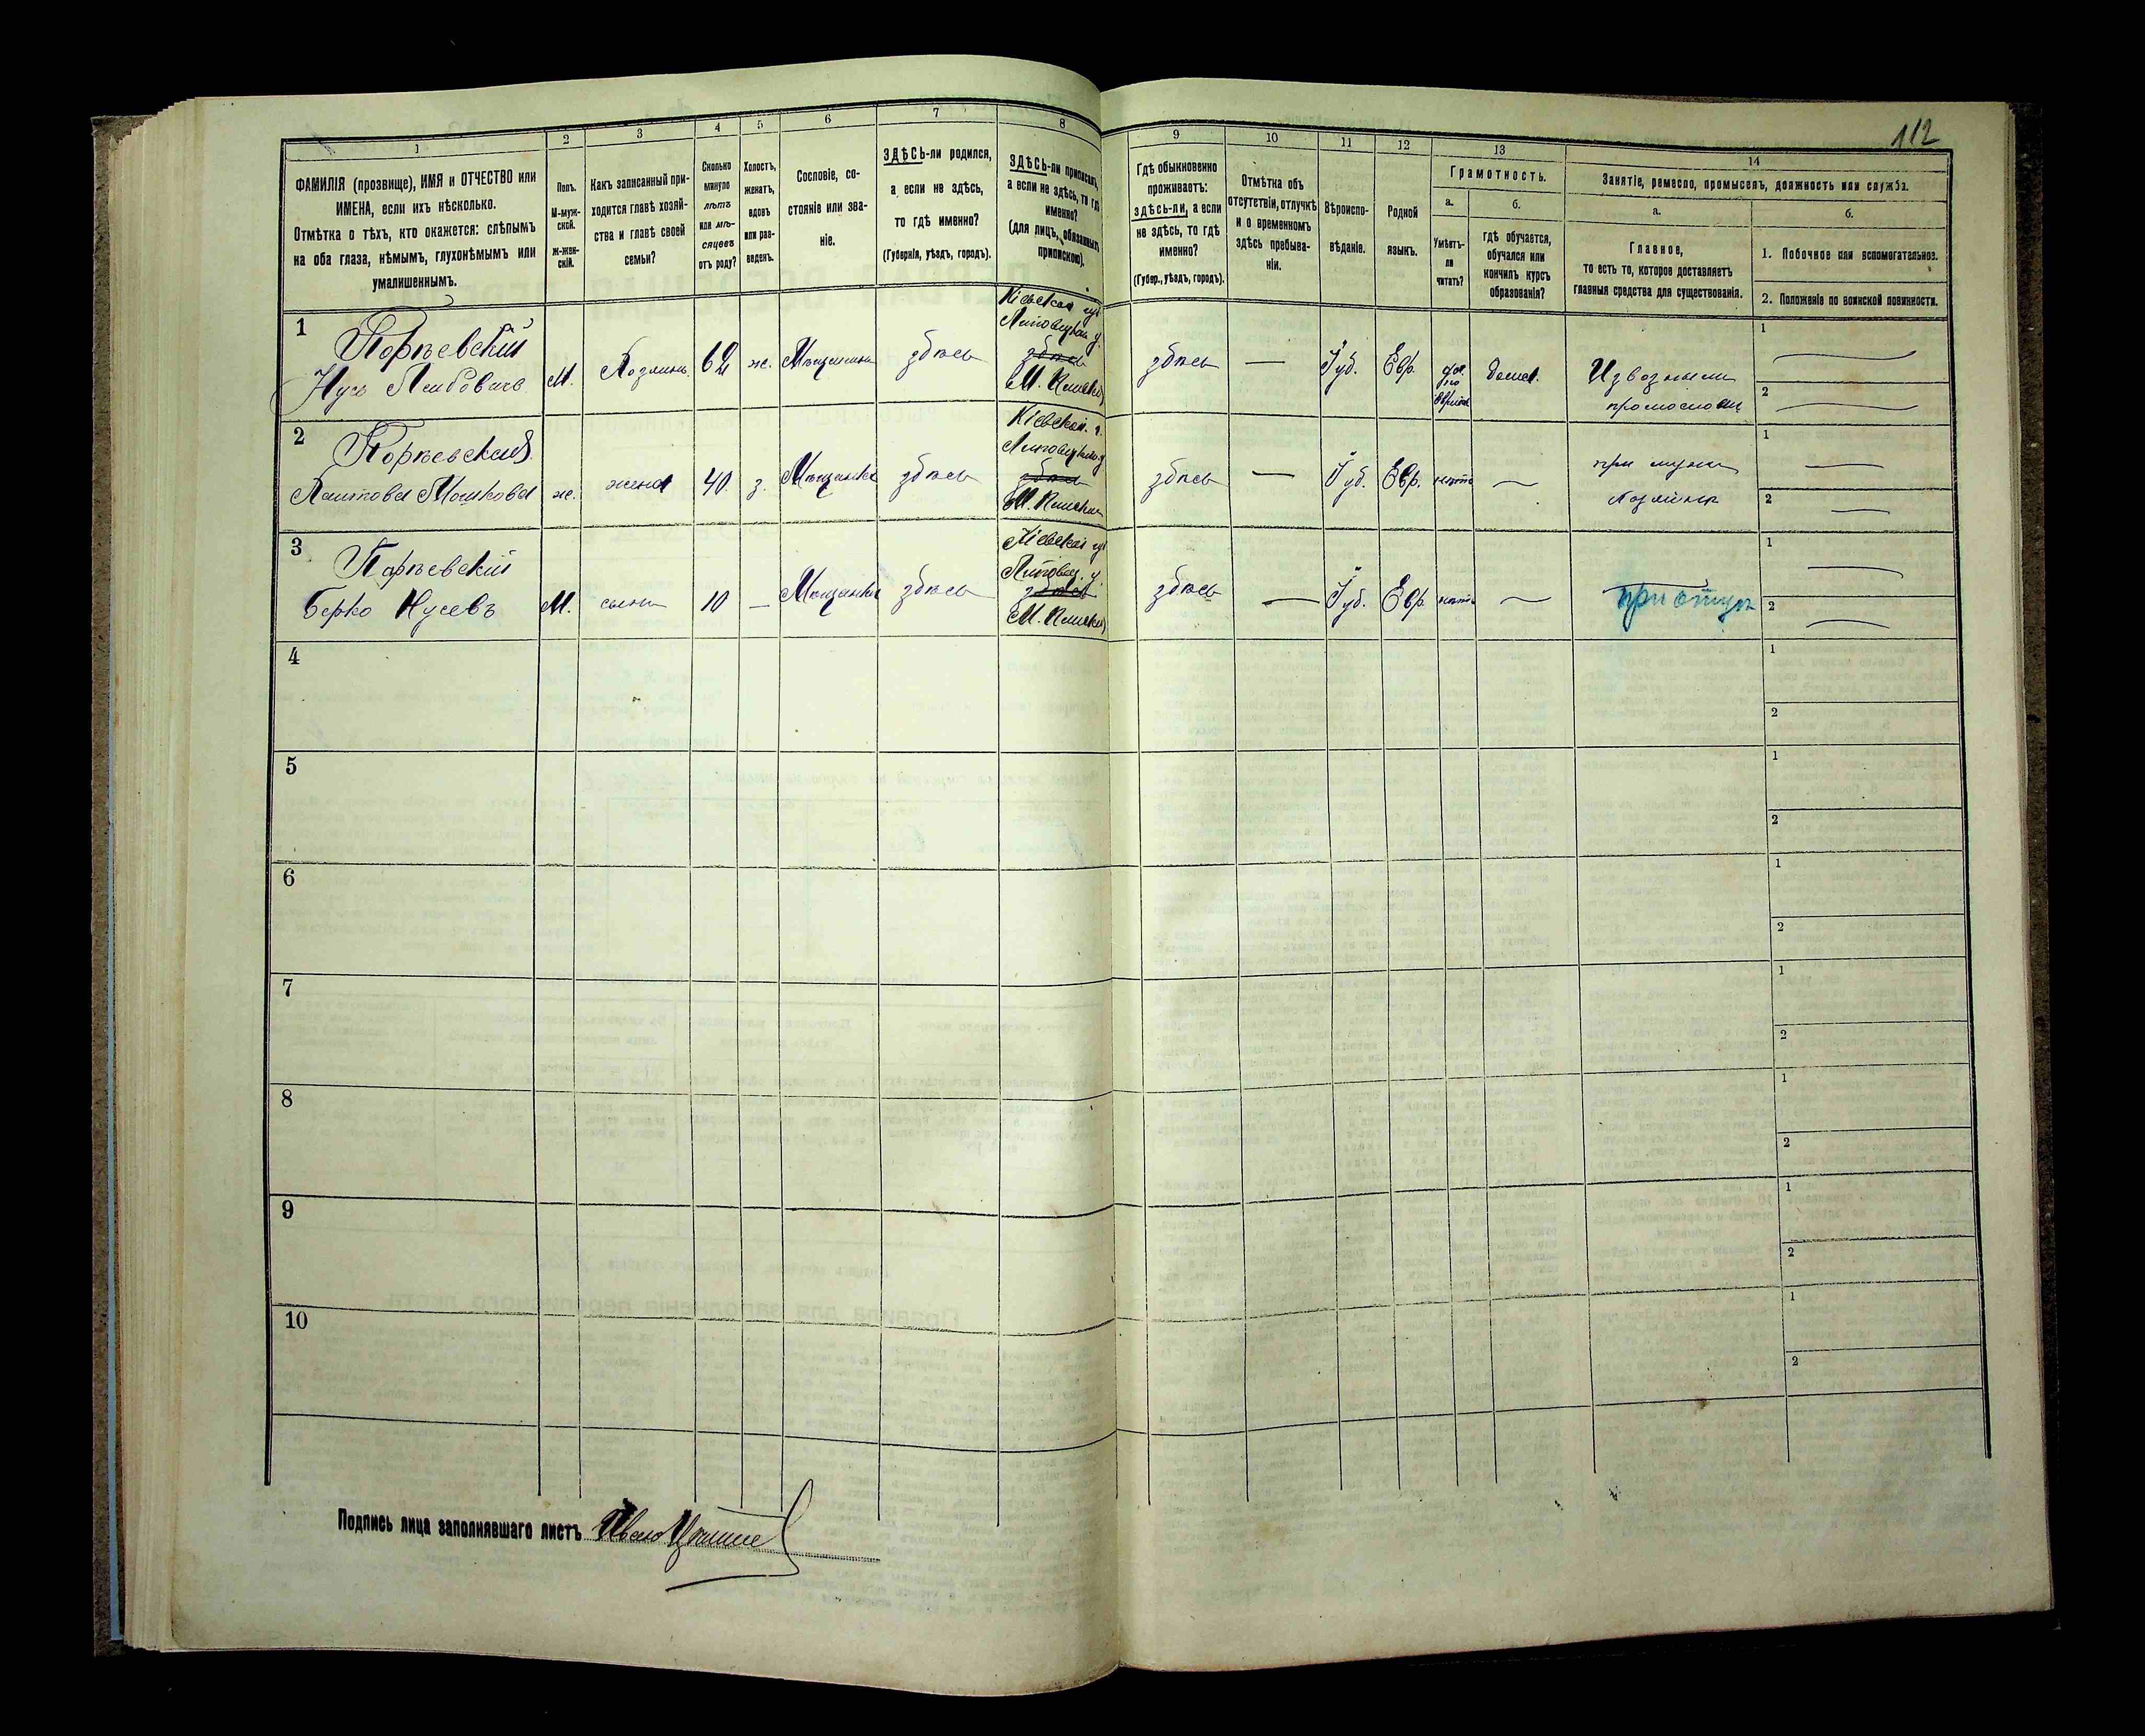 112
1
2
3
4
5
6
7
8
9
10
11
12
13
14
ФАМИЛІЯ (прозвище), ИМЯ и ОТЧЕСТВО или
ИМЕНА, если ихъ нѣсколько.
Отмѣтка о тѣхъ, кто окажется: слѣпымъ
на оба глаза, нѣмымъ, глухонѣмымъ или
умалишеннымъ.
Полъ.
М-муж-
ской.
Ж-жен-
скій.
Какъ записанный при-
ходится главѣ хозяй-
ства и главѣ своей
семьи?
Сколько
минуло
лѣтъ
или мѣ-
сяцевъ
отъ роду?
Холостъ,
женатъ,
вдовъ
или раз-
веденъ.
Сословіе, со-
стояніе или зва-
ніе.
ЗДѢСЬ-ли родился,
а если не здѣсь,
то гдѣ именно?
(Губернія, уѣздъ, городъ).
ЗДѢСЬ-ли приписанъ,
а если не здѣсь, то гдѣ
именно?
(для лицъ, обязанныхъ
припискою).
Гдѣ обыкновенно
проживаетъ:
здѣсь-ли, а если
не здѣсь, то гдѣ
именно?
(Губер., уѣздъ, городъ).
Отмѣтка объ
отсутствіи, отлучкѣ
и о временномъ
здѣсь пребыва-
ніи.
Вѣроиспо-
вѣданіе.
Родной
языкъ.
Грамотность.
а.
Умѣетъ-
ли
читать?
б.
гдѣ обучается,
обучался или
кончилъ курсъ
образованія?
Занятіе, ремесло, промыселъ, должность или служба.
а.
Главное,
то есть то, которое доставляетъ
главныя средства для существованія.
б.
1. Побочное или вспомогательное.
2. Положеніе по воинской повинности.
1
Нусь Лейбовичъ
М.
Хозяинъ
62
ж.
Мѣщанинъ
здѣсь
Кіевская губ
Липовецкій у.
здѣсь
здѣсь
—
Іуд.
Евр.
да
по
еврейск
домаш.
Извознымъ
промысломъ
1
2
2
ж.
жена
40
з.
Мѣщанка
здѣсь
Кіевской г.
здѣсь
здѣсь
—
Іуд.
Евр.
нѣтъ
—
при мужѣ
1
2
3
Берко Нусевъ
М.
сынъ
10
—
здѣсь
Кіевской губ
Липовец. у.
здѣсь
здѣсь
—
Іуд.
Евр.
нѣтъ
—
при отцѣ
1
2
4
1
2
5
1
2
6
1
2
7
1
2
8
1
2
9
1
2
10
1
2
Подпись лица заполнявшаго листъ